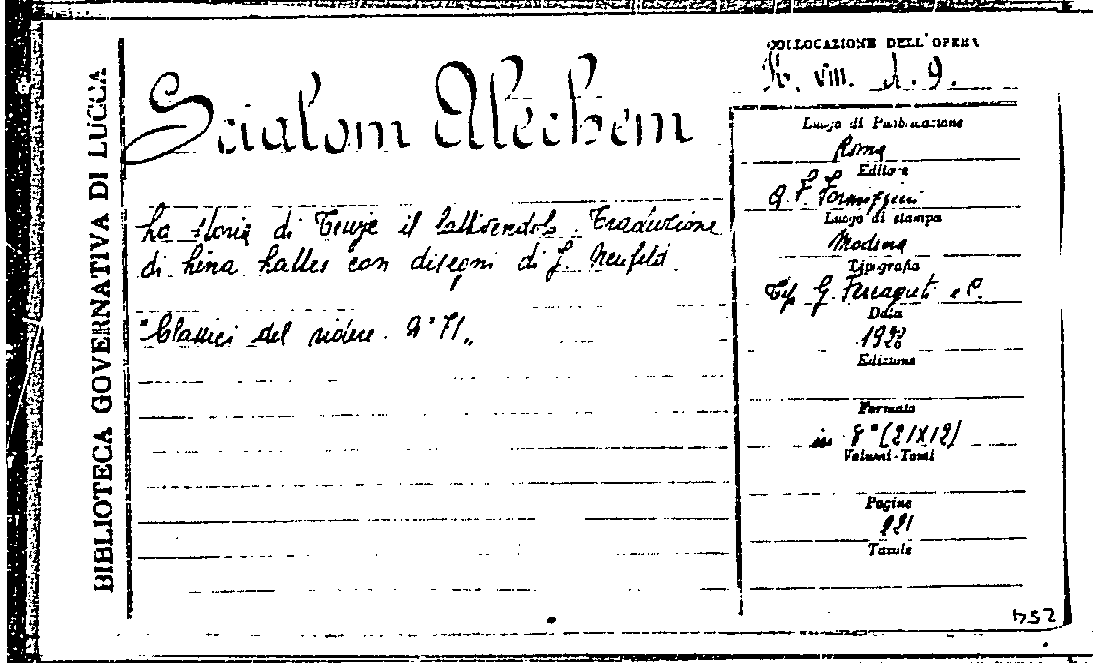 BIBLIOTECA GOVERNATIVA DI LUCCA
Scialom Alechem
La storia di Tewje il lattivendolo. Traduzione
di Lina Lattes con disegni di J. Neufeld.
"Classici del ridere. N° 71„
COLLOCAZIONE DELL'OPERA
VIII. 9.
Luogo di Pubblicazione
Roma
Editore
A. F. Formiggini
Luogo di stampa
Modena
Tipografia
Tip. G. Ferraguti e C.
Data
Edizione
Formato
in 8° (21X12)
Volumi-Tomi
Pagine
221
Tavole
254